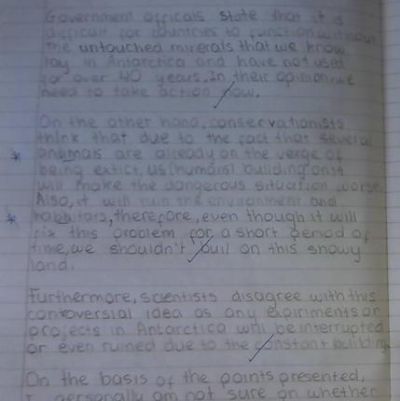 Government officals state that it is
difficult for countries to function without
the untouched minerals that we know
lay in Antarctica and have not used
for over 40 years. In their opinion we
need to take action now.
On the other hand, conservationists
think that due to the fact that several
animals are already on the verge of
being extict, us (humans) building on it
will make the dangerous situation worse.
Also, it will ruin the environment and
habbitats, therefore, even though it will
fix this problem for a short period of
time, we shouldn't buil on this snowy
land.
Furthermore, scientists disagree with this
controversial idea as any expiriments or
projects in Antarctica will be interrupted
or even ruined due to the constant building
On the basis of the points presented,
I personally am not sure on whether